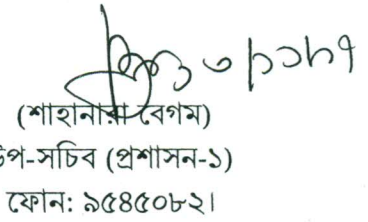 (শাহানারা বেগম)
উপ-সচিব (প্রশাসন-১)
ফোন: ৯৫৪৫০৮২।